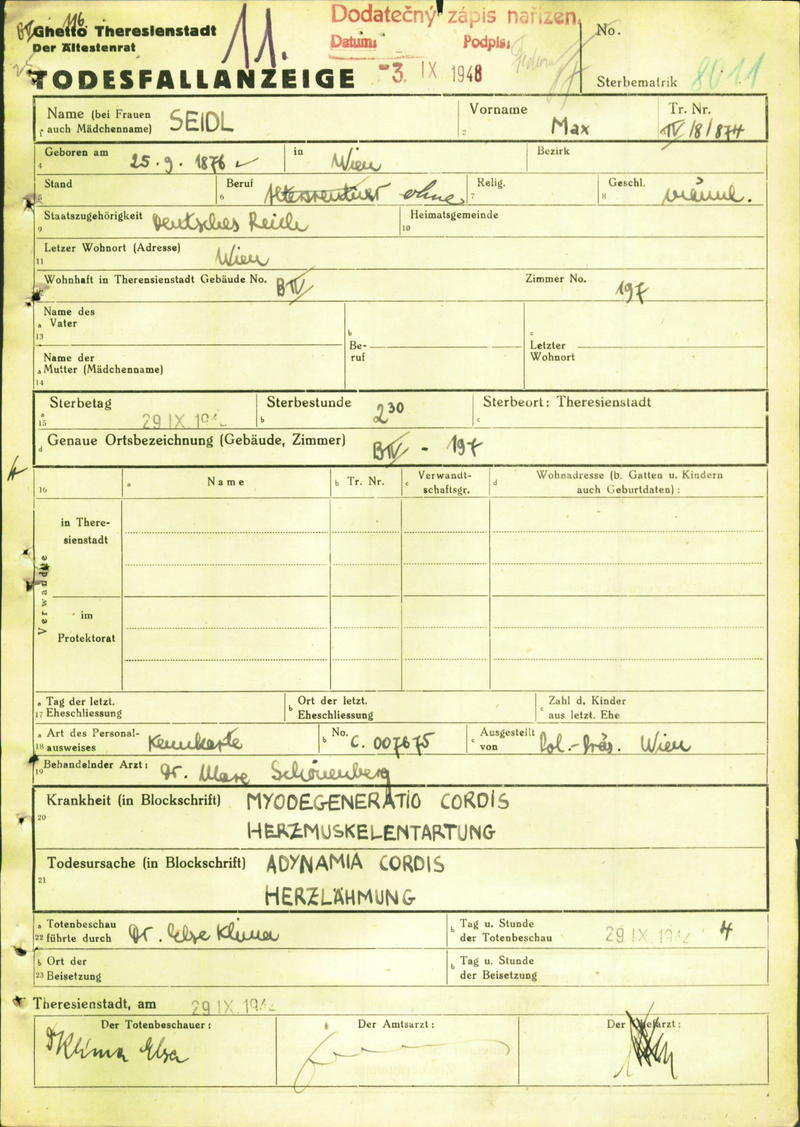 116
Ghetto Theresienstadt
Der Ältestenrat
11.
Dodatečný zápis nařízen.
Datum: Podpis:
-3. IX 1948
No.
TODESFALLANZEIGE
Sterbematrik 8011
Name (bei Frauen auch Mädchenname) SEIDL
Vorname Max
Tr. Nr. IV/8/874
Geboren am 25.9.1876 in Wien Bezirk
Stand Beruf Altersrentner ohne Relig. Geschl. männl.
Staatszugehörigkeit Deutsches Reich Heimatsgemeinde
Letzer Wohnort (Adresse) Wien
Wohnhaft in Theresienstadt Gebäude No. BIV Zimmer No. 197
Name des Vater
Beruf
Letzter Wohnort
Name der Mutter (Mädchenname)
Sterbetag 29 IX. 194 Sterbestunde 2 30 Sterbeort: Theresienstadt
Genaue Ortsbezeichnung (Gebäude, Zimmer) BIV - 197
16 a Name b Tr. Nr. c Verwandtschaftsgr. d Wohnadresse (b. Gatten u. Kindern auch Geburtdaten):
Verwandte
in Theresienstadt
im Protektorat
Tag der letzt. Eheschliessung Ort der letzt. Eheschliessung Zahl d. Kinder aus letzt. Ehe
Art des Personalausweises Kennkarte No. C. 007675 Ausgestellt von Pol.-Präs. Wien
Behandelnder Arzt: Dr. Schönenberg
Krankheit (in Blockschrift) MYODEGENERATIO CORDIS
HERZMUSKELENTARTUNG
Todesursache (in Blockschrift) ADYNAMIA CORDIS
HERZLÄHMUNG
Totenbeschau führte durch Dr. Else Klima Tag u. Stunde der Totenbeschau 29 IX. 194 4
Ort der Beisetzung Tag u. Stunde der Beisetzung
Theresienstadt, am 29 IX. 194
Der Totenbeschauer: Der Amtsarzt: Der Chefarzt:
Dr Klima Elsa